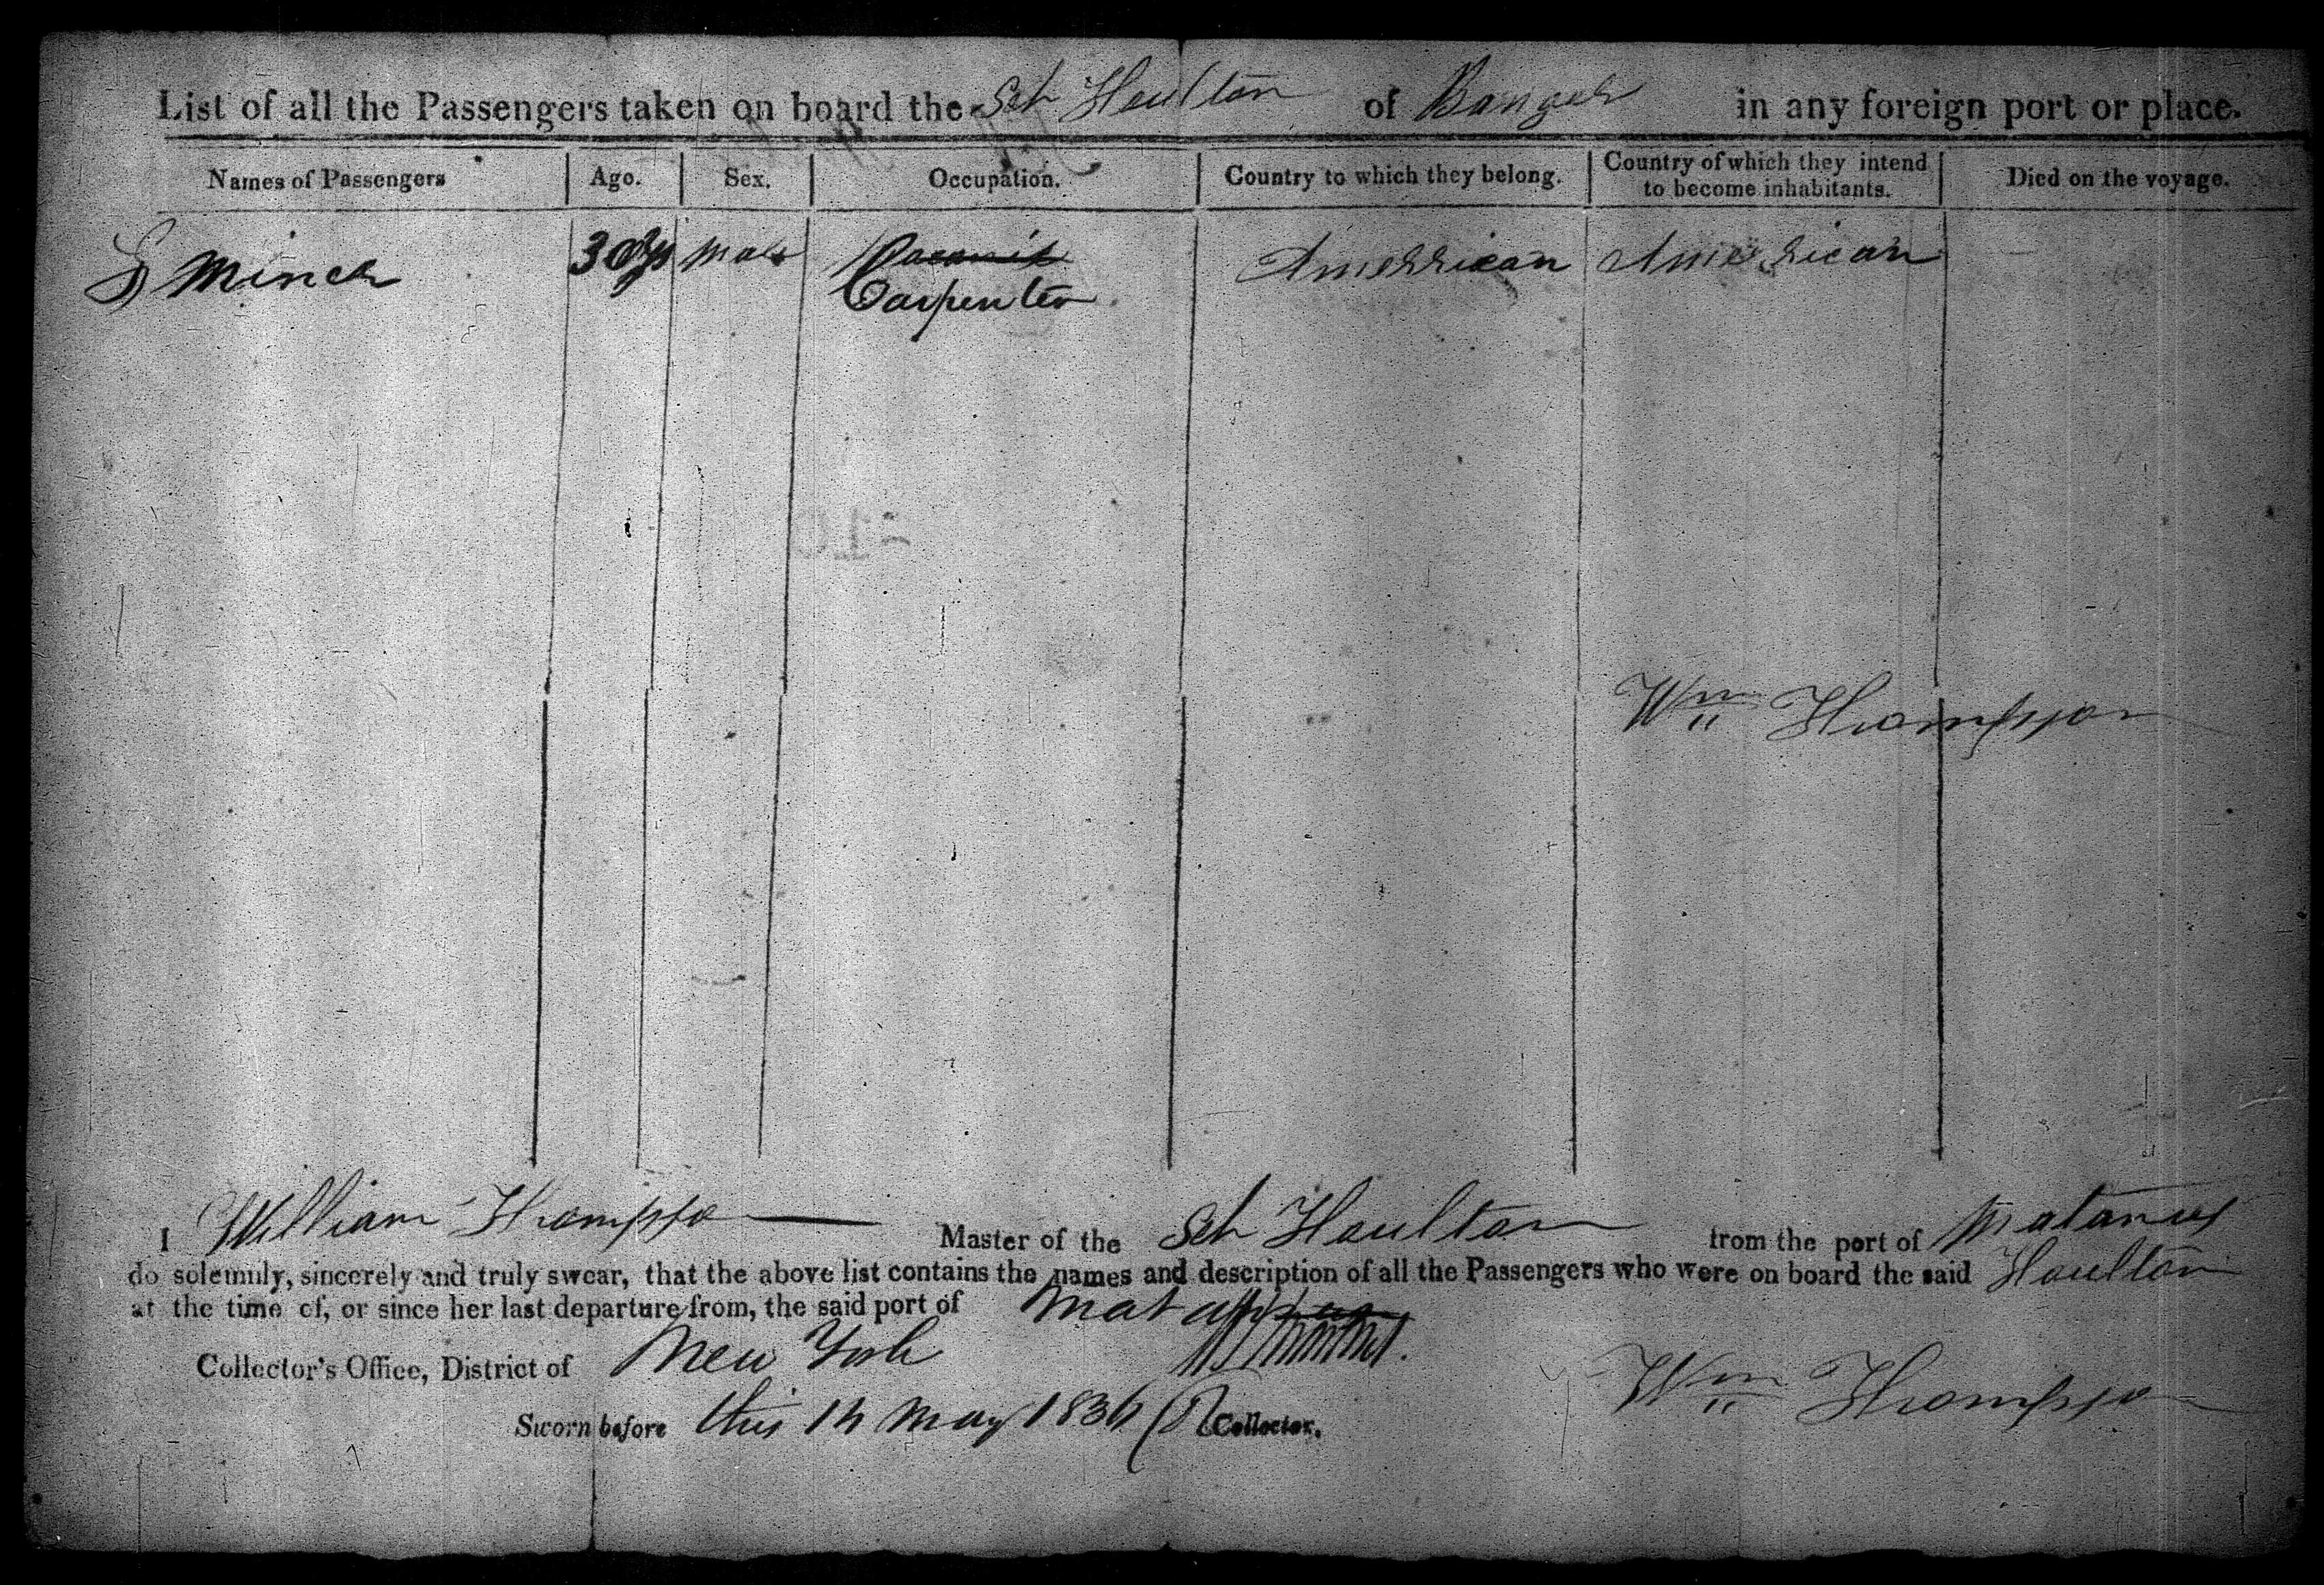 List of all the Passengers taken on board the Sch Houlton of Bangor in any foreign port or place.
Names of Passengers Age. Sex. Occupation. Country to which they belong. Country of which they intend to become inhabitants. Died on the voyage.
S Miner 30 ys Male Amerrican Amerrican
Carpenter
Wm Thompson
I William Thompson Master of the Sch Houlton from the port of Matanzas
do solemnly, sincerely and truly swear, that the above list contains the names and description of all the Passengers who were on board the said Houlton
at the time of, or since her last departure from, the said port of
Collector's Office, District of New York
Sworn before this 14 May 1836 Collector.
Wm Thompson